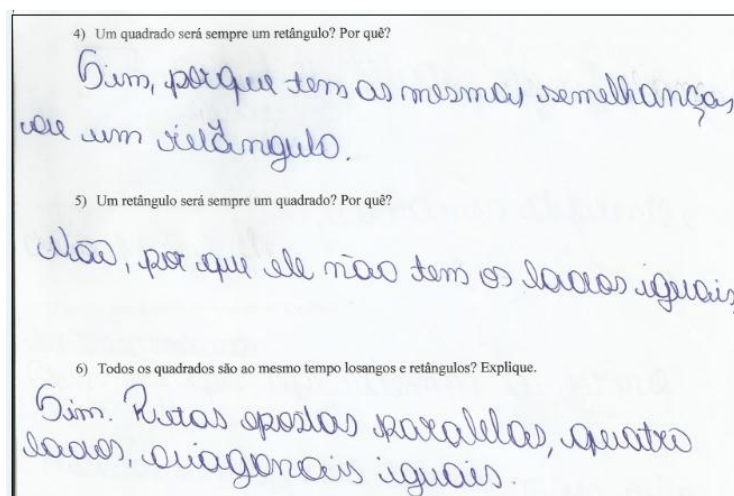 4) Um quadrado será sempre um retângulo? Por quê?
Sim, porque tem as mesmas semelhanças
que um retângulo.
5) Um retângulo será sempre um quadrado? Por quê?
Não, por que ele não tem os lados iguais,
6) Todos os quadrados são ao mesmo tempo losangos e retângulos? Explique.
Sim. Retas opostas paralelas, quatro
lados, diagonais iguais.